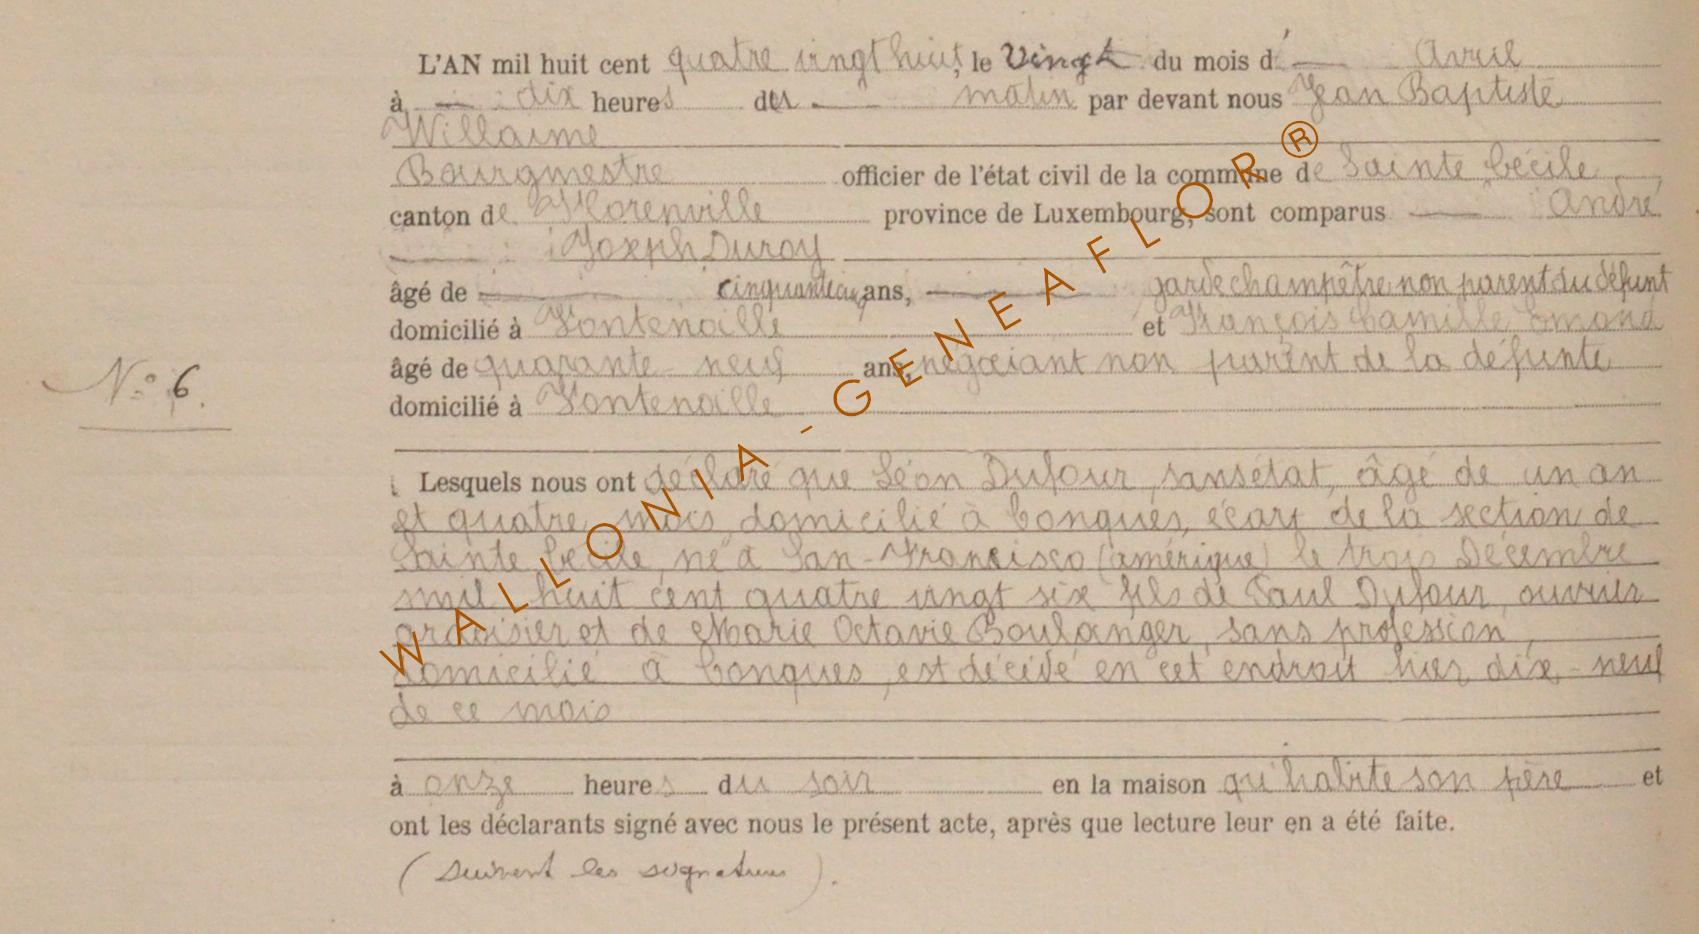 L'AN mil huit cent quatre vingt huit, le Vingt du mois d' Avril
à dix heures du matin par devant nous Jean Baptiste
Willaime
Bourgmestre officier de l'état civil de la commune de Sainte Cécile
canton de Florenville province de Luxembourg, sont comparus André
Joseph Duroy
âgé de cinquante ans, garde champêtre non parent du défunt
domicilié à Fontenoille et François Camille Emond
N° 6.
âgé de quarante neuf ans, négociant non parent de la défunte
domicilié à Fontenoille
Lesquels nous ont déclaré que Léon Dufour, sans état, âgé de un an
et quatre mois domicilié à Conques, écart de la section de
Sainte Cécile, né à San-Francisco (amérique) le trois Décembre
mil huit cent quatre vingt six fils de Paul Dufour, ouvrier
ardoisier et de Marie Octavie Boulanger, sans profession,
domicilié à Conques, est décédé en cet endroit hier dix-neuf
de ce mois
à onze heures du soir en la maison qu'habite son père et
ont les déclarants signé avec nous le présent acte, après que lecture leur en a été faite.
(suivent les signatures).
WALLONIA-GENEAFLOR®